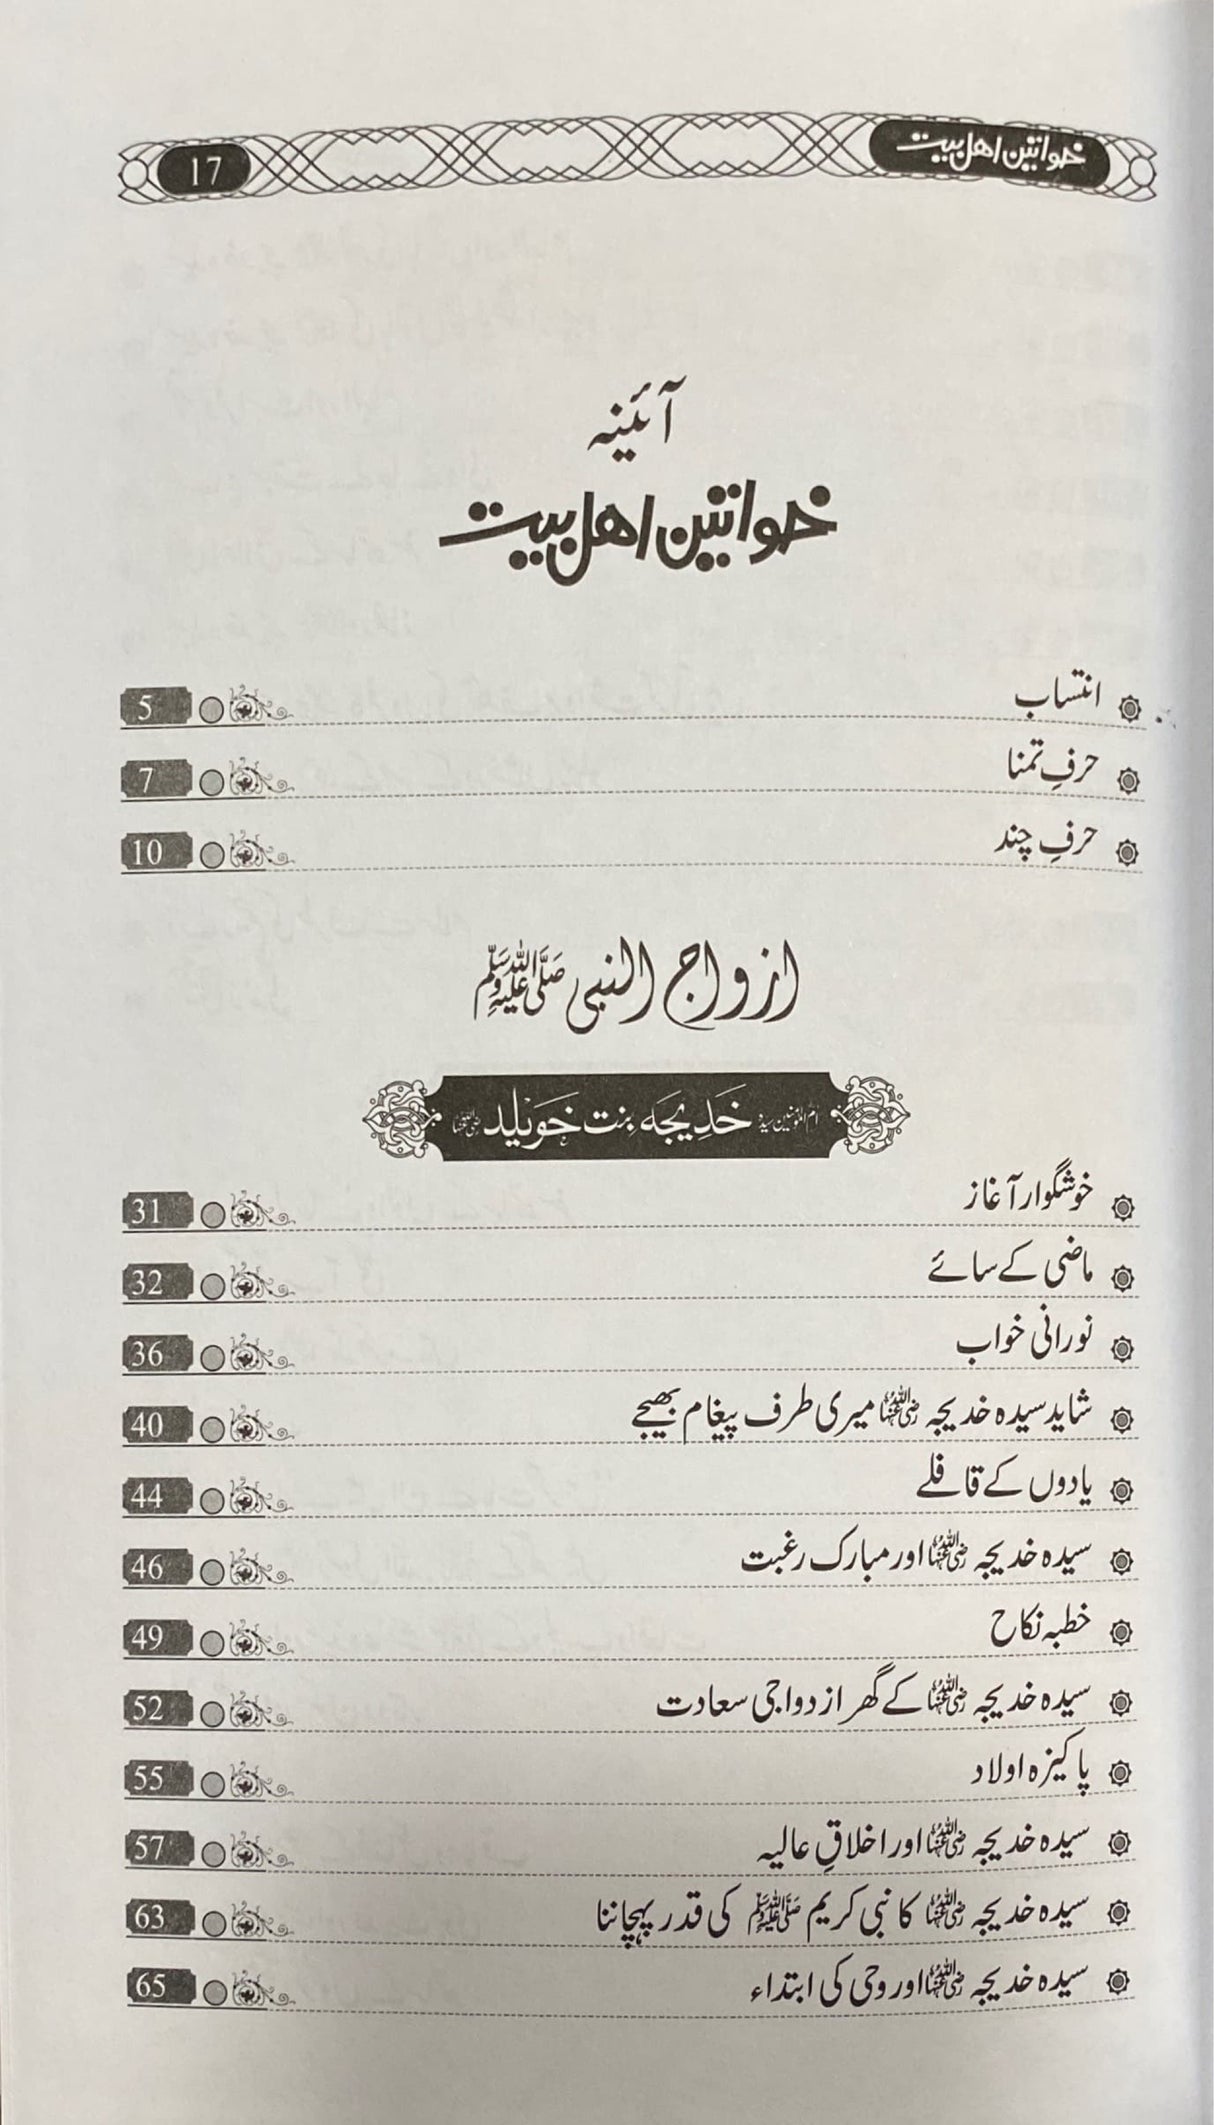 خواتین اهل بیت 17
آئینہ
خواتین اهل بیت
انتساب 5
حرفِ تمنا 7
حرفِ چند 10
ازواج النبی ﷺ
ام المؤمنین سیدہ خدیجہ بنت خویلد رضی اللہ عنہا
خوشگوار آغاز 31
ماضی کے سائے 32
نورانی خواب 36
شاید سیدہ خدیجہ رضی اللہ عنہا میری طرف پیغام بھیجے 40
یادوں کے قافلے 44
سیدہ خدیجہ رضی اللہ عنہا اور مبارک رغبت 46
خطبہ نکاح 49
سیدہ خدیجہ رضی اللہ عنہا کے گھر ازدواجی سعادت 52
پاکیزہ اولاد 55
سیدہ خدیجہ رضی اللہ عنہا اور اخلاقِ عالیہ 57
سیدہ خدیجہ رضی اللہ عنہا کا نبی کریم ﷺ کی قدر پہچاننا 63
سیدہ خدیجہ رضی اللہ عنہا اور وحی کی ابتداء 65